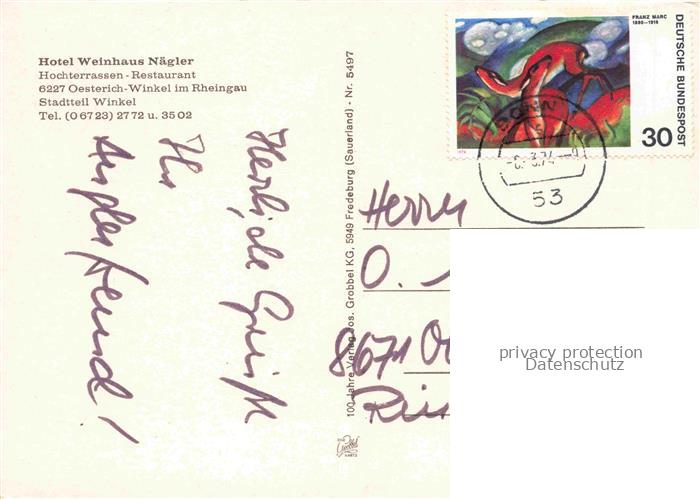 Hotel Weinhaus Nägler
Hochterrassen - Restaurant
6227 Oesterich-Winkel im Rheingau
Stadtteil Winkel
Tel. (0 67 23) 27 72 u. 35 02
Herzliche Grüße
Ihr
100 Jahre Verlag Jos. Grobbel KG, 5949 Fredeburg (Sauerland) - Nr. 5497
FRANZ MARC
1880-1916
DEUTSCHE BUNDESPOST
30
BONN
53
Herrn
O.
8671
privacy protection
Datenschutz